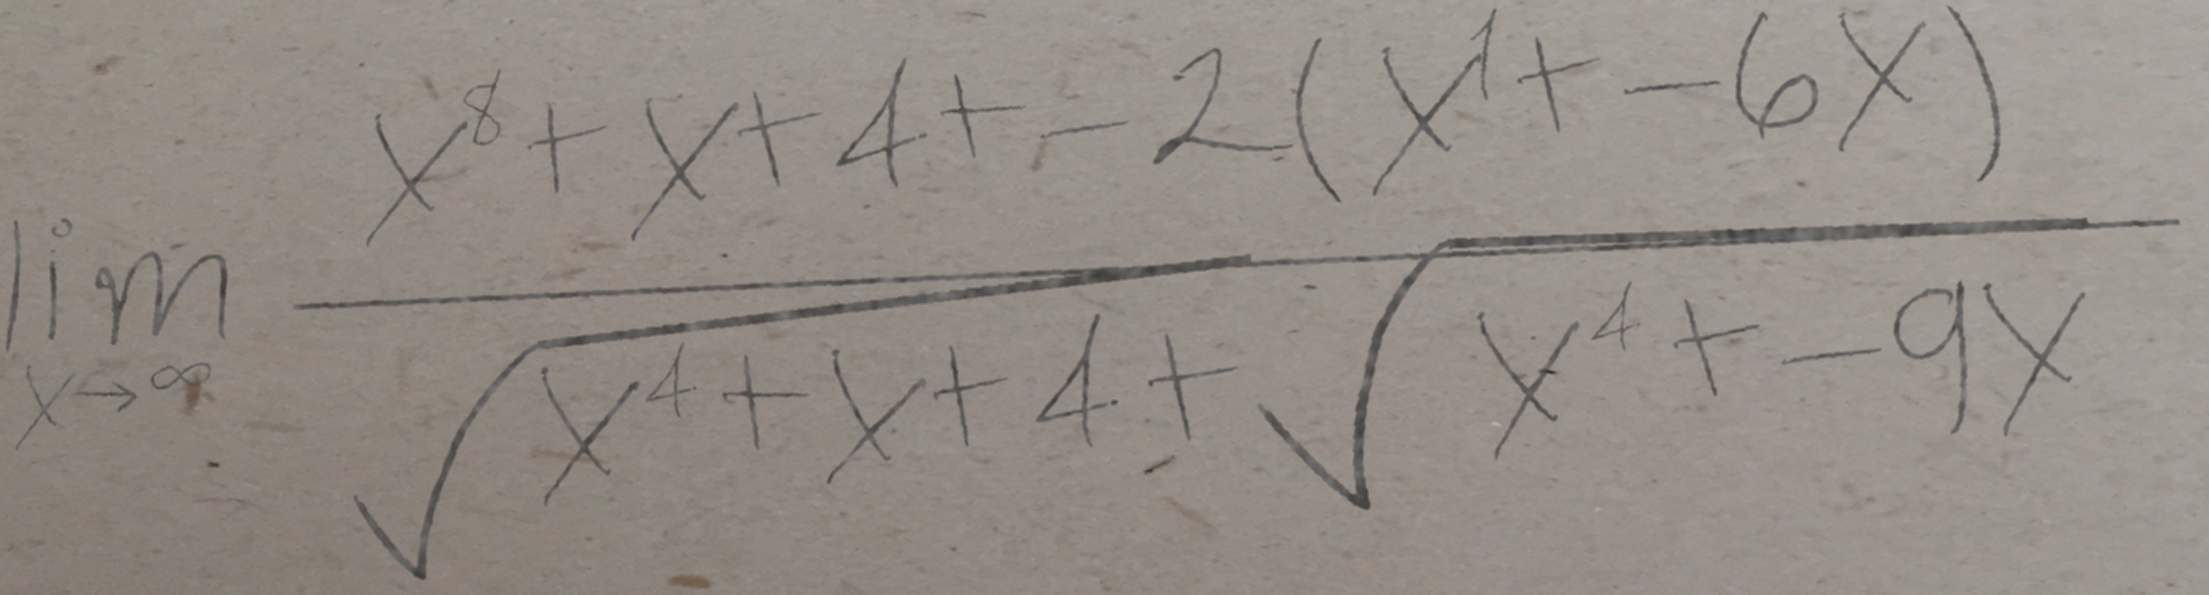 \lim_{x \to \infty} \frac{x^8 + x + 4 + -2(x^1 + -6x)}{\sqrt{x^4 + x + 4} + \sqrt{x^4 + -9x}}